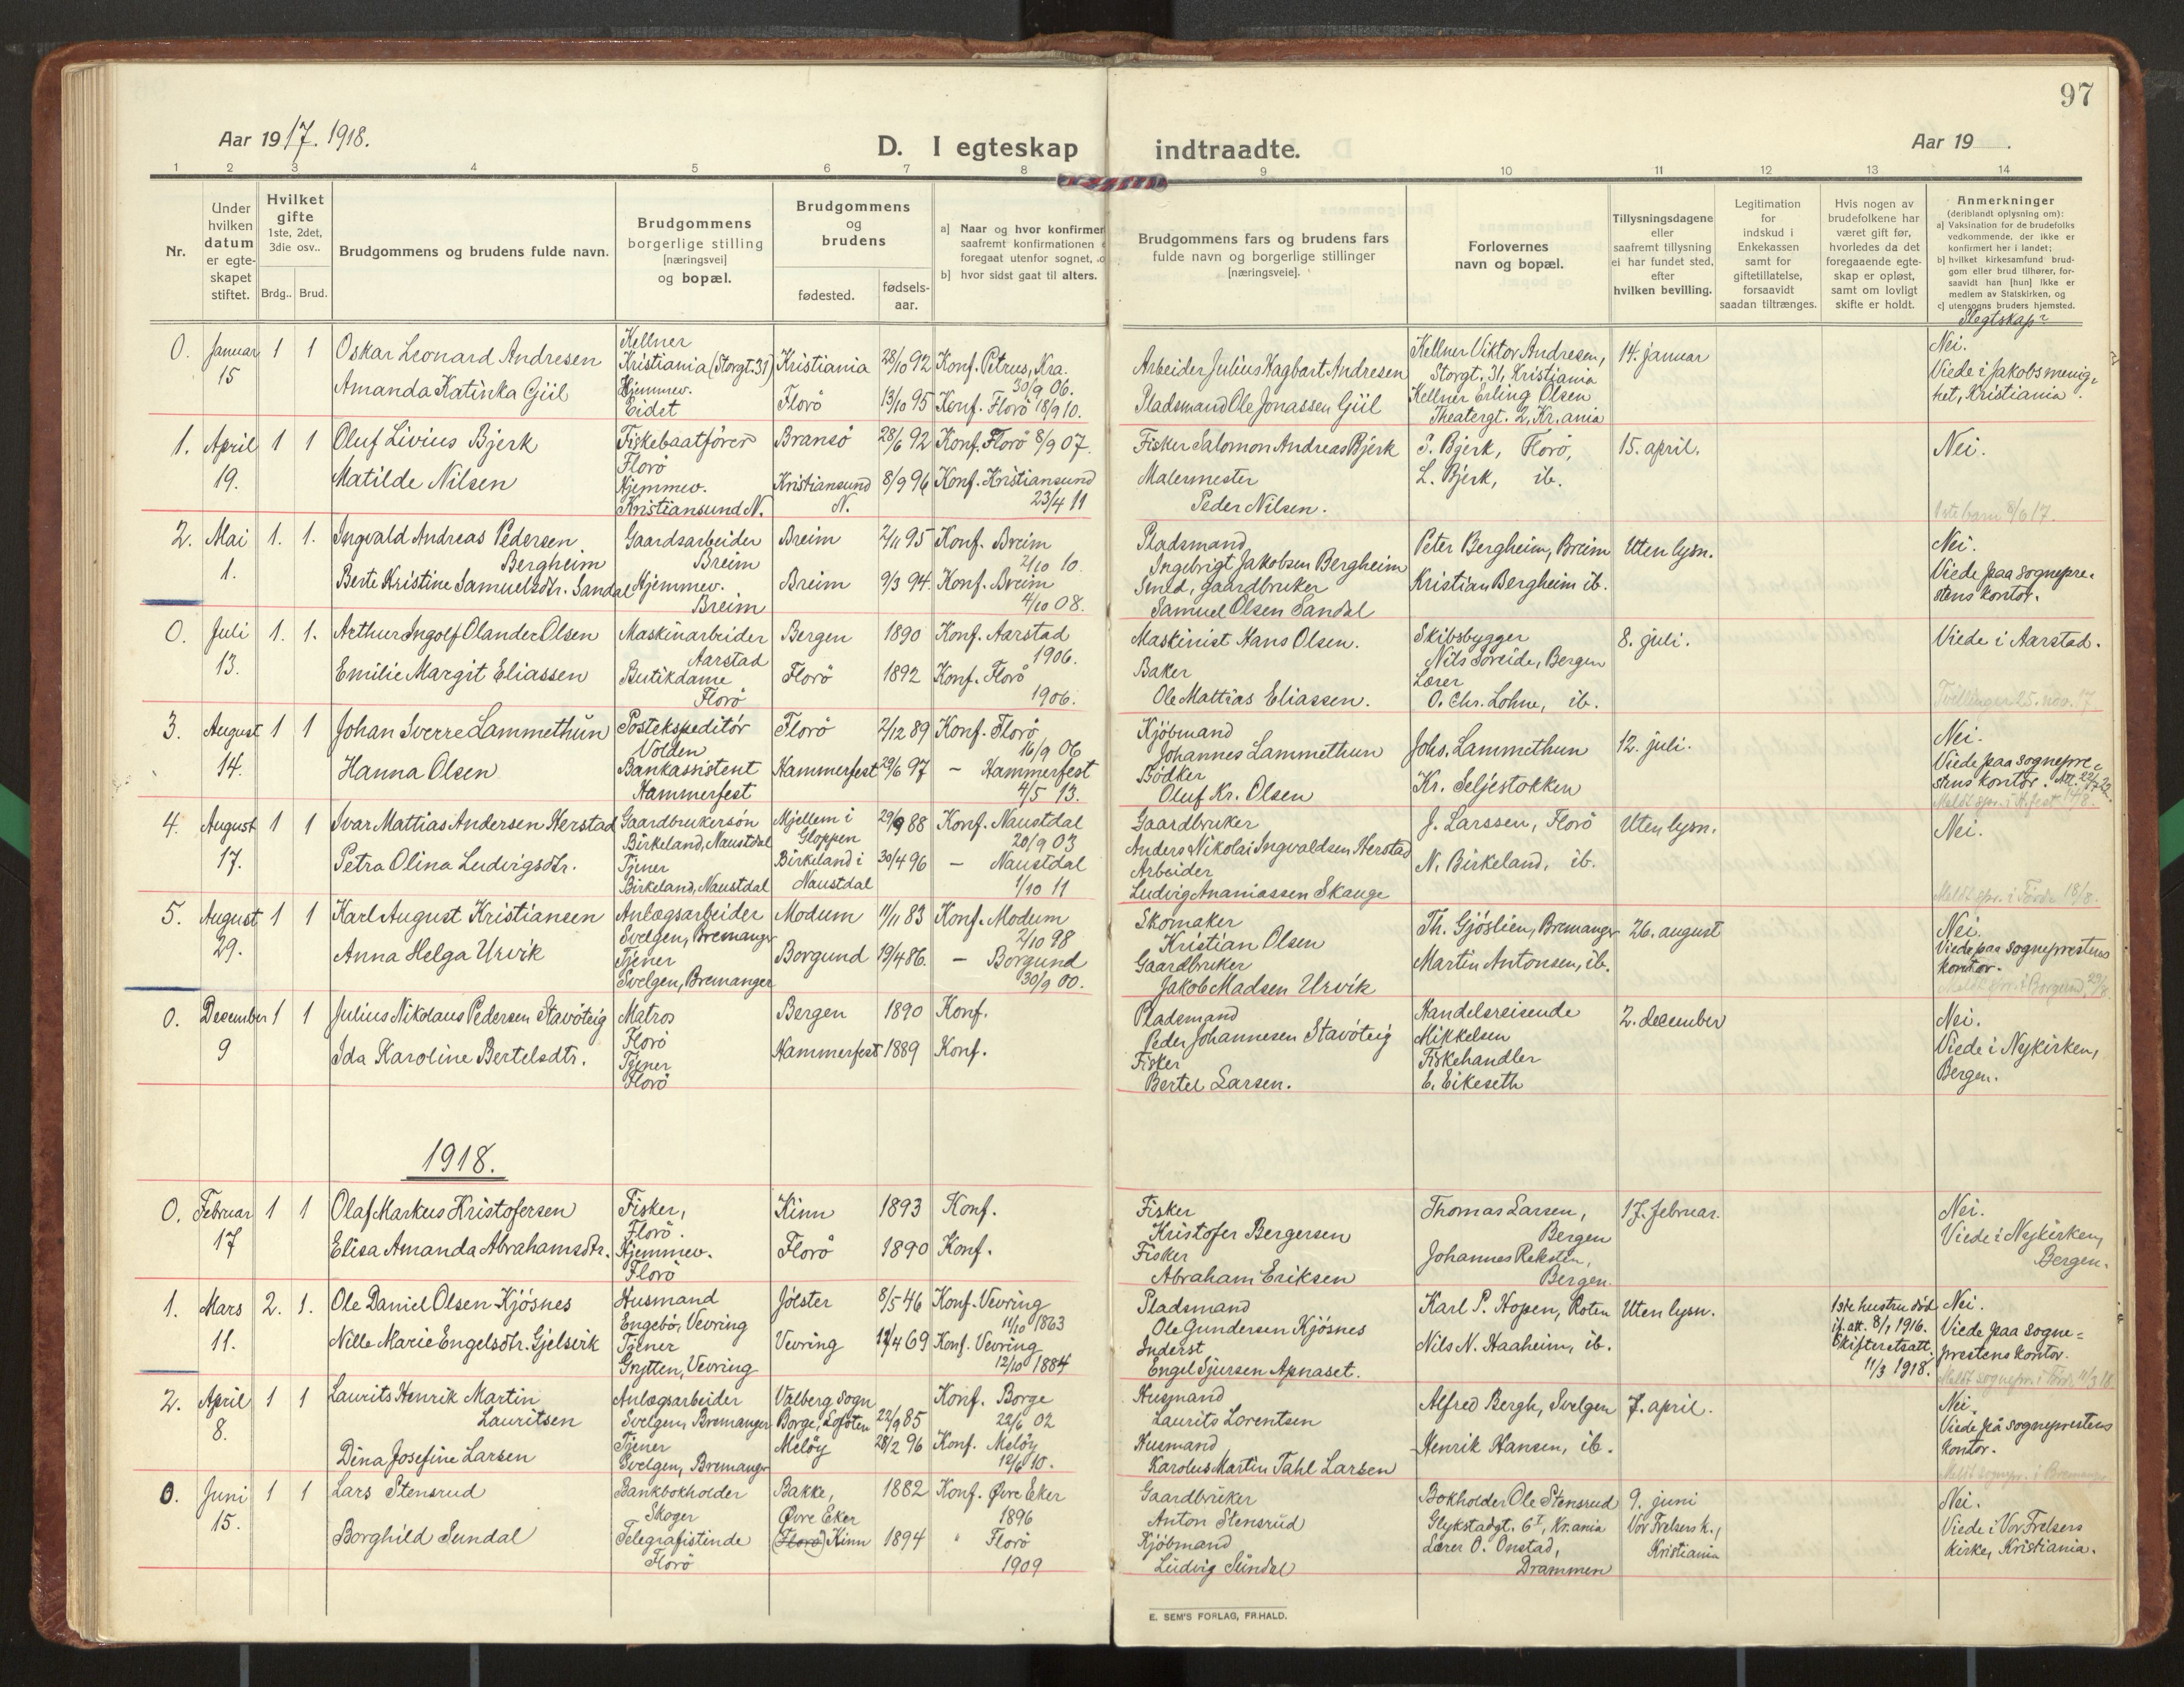 97
Aar 1917. 1918.
D. I egteskap indtraadte.
Aar 19 .
1 2 3 4 5 6 7 8 9 10 11 12 13 14
Nr.
Under hvilken datum er egte-skapet stiftet.
Hvilket gifte 1ste, 2det, 3die osv..
Brdg.. Brud.
Brudgommens og brudens fulde navn.
Brudgommens borgerlige stilling [næringsvei] og bopæl.
Brudgommens og brudens
fødested.
fødsels-aar.
a] Naar og hvor konfirmer
saafremt konfirmationen
foregaat utenfor sognet,
b] hvor sidst gaat til alters.
Brudgommens fars og brudens fars
fulde navn og borgerlige stillinger
[næringsveie].
Forlovernes
navn og bopæl.
Tillysningsdagene
eller
saafremt tillysning
ei har fundet sted,
efter
hvilken bevilling.
Legitimation
for
indskud i
Enkekassen
samt for
giftetillatelse,
forsaavidt
saadan tiltrænges.
Hvis nogen av
brudefolkene har
været gift før,
hvorledes da det
foregaaende egte-
skap er opløst,
samt om lovligt
skifte er holdt.
Anmerkninger
(deriblandt oplysning om):
a] Vaksination for de brudefolks
vedkommende, der ikke er
konfirmert her i landet;
b] hvilket kirkesamfund brud-
gom eller brud tilhører, for-
saavidt han [hun] ikke er
medlem av Statskirken, og
c] utensogns bruders hjemsted.
Slegtskap?
0. Januar 15 1 1 Oskar Leonard Andresen
Amanda Katinka Gül
Kellner
Kristiania (Storgt. 31)
Hjemmev.
Eidet
Kristiania 28/10 92 Konf. Petrus, Kra. 30/9 06.
Florö 13/10 95 Konf. Florö 18/9 10.
Arbeider Julius Hagbart Andresen
Pladsmand Ole Jonassen Gül
Kellner Viktor Andresen,
Storgt. 31, Kristiania
Kellner Erling Olsen
Theatergt. 2, Kr.ania
14. januar
Nei.
Viede i Jakobs menig-
het, Kristiania.
1. April 19. 1 1 Oluf Livius Bjerk
Matilde Nilsen
Fiskebaatförer
Florö
Hjemmev.
Kristiansund N.
Bransö 28/6 92 Konf. Florö 8/9 07.
Kristiansund N. 8/9 96 Konf. Kristiansund 23/4 11
Fisker Salomon Andreas Bjerk
Malermester
Peder Nilsen.
S. Bjerk, Florö,
L. Bjerk, ib.
15. april.
Nei.
1ste barn 8/6 17.
2. Mai 1. 1. 1. Ingvald Andreas Pedersen
Bergheim
Berte Kristine Samuelsdtr. Sandal
Gaardsarbeider
Breim
Hjemmev.
Breim
Breim 2/11 95 Konf. Breim 2/10 10.
Breim 9/3 94. Konf. Breim 4/10 08.
Pladsmand
Ingebrigt Jakobsen Bergheim
Smed, gaardbruker
Samuel Olsen Sandal
Peter Bergheim, Breim
Kristian Bergheim ib.
Uten lysn.
Nei.
Viede paa sognepre-
stens kontor.
0. Juli 13. 1. 1. Arthur Ingolf Olander Olsen
Emilie Margit Eliassen
Maskinarbeider
Aarstad
Butikdame
Florö
Bergen 1890 Konf. Aarstad 1906.
Florö 1892 Konf. Florö 1906.
Maskinist Hans Olsen.
Baker
Ole Mattias Eliassen.
Skibsbygger
Nils Söreide, Bergen
Lærer
O. Chr. Lohne, ib.
8. juli.
Viede i Aarstad.
Tvillinger 25. nov. 17
3. August 14. 1 1 Johan Sverre Lammethun
Hanna Olsen
Postekspeditör
Volden
Bankassistent
Hammerfest
Florö 2/12 89 Konf. Florö 16/9 06
Hammerfest 29/6 97 – Hammerfest 4/5 13.
Kjöbmand
Johannes Lammethun
Bödker
Oluf Kr. Olsen
Johs. Lammethun
Kr. Seljestokken
12. juli.
Nei.
Viede paa sognepre-
stens kontor.
4. August 17. 1 1 Ivar Mattias Andersen Herstad
Petra Olina Ludvigsdtr.
Gaardbrukersön
Birkeland, Naustdal
Tjener
Birkeland, Naustdal
Mjellem i Gloppen 29/9 88 Konf. Naustdal 20/9 03
Birkeland i Naustdal 30/4 96 – Naustdal 1/10 11
Gaardbruker
Anders Nikolai Ingvaldsen Herstad
Arbeider
Ludvig Ananiassen Skauge
J. Larssen, Florö
N. Birkeland, ib.
Uten lysn.
Nei.
Meldt spr. i Förde 18/8.
5. August 29. 1 1 Karl August Kristiansen
Anna Helga Urvik
Anlægsarbeider
Svelgen, Bremanger
Tjener
Svelgen, Bremanger
Modum 11/11 83 Konf. Modum 2/10 98
Borgund 19/4 86. – Borgund 30/9 00.
Skomaker
Kristian Olsen
Gaardbruker
Jakob Madsen Urvik
Th. Gjöslien, Bremanger
Martin Antonsen, ib.
26. august
Nei.
Viede paa sogneprestens
kontor.
Meldt spr. i Borgund 29/8
0. December 9 1 1 Julius Nikolaus Pedersen Stavöteig
Ida Karoline Bertelsdtr.
Matros
Florö
Tjener
Florö
Bergen 1890 Konf.
Hammerfest 1889 Konf.
Pladsmand
Peder Johannesen Stavöteig
Fisker
Bertel Larsen.
Handelsreisende
Mikkelsen
Fiskehandler
E. Eikeseth
2. december
Nei.
Viede i Nykirken,
Bergen.
1918.
0. Februar 17 1 1 Olaf Markus Kristofersen
Elisa Amanda Abrahamsdtr.
Fisker,
Florö.
Hjemmev.
Florö
Kinn 1893 Konf.
Florö 1890 Konf.
Fisker
Kristofer Bergersen
Fisker
Abraham Eriksen
Thomas Larsen,
Bergen
Johannes Reksten,
Bergen.
17. februar.
Nei.
Viede i Nykirken,
Bergen.
1. Mars 11. 2. 1. Ole Daniel Olsen Kjösnes
Nille Marie Engelsdtr. Gjelsvik
Husmand
Engebö, Vevring
Tjener
Grytten, Vevring
Jölster 8/5 46 Konf. Vevring 11/10 1863
Vevring 12/4 69 Konf. Vevring 12/10 1884
Pladsmand
Ole Gundersen Kjösnes
Inderst
Engel Sjursen Apnaset.
Karl P. Hopen, Roten
Nils N. Haaheim, ib.
Uten lysn.
1ste hustru död
if. att. 8/1 1916.
Skifteretsatt.
11/3 1918.
Nei.
Viede paa sogne-
prestens kontor.
2. April 8. 1 1 Laurits Henrik Martin
Lauritsen
Dina Josefine Larsen
Anlægsarbeider
Svelgen, Bremanger
Tjener
Svelgen, Bremanger
Valberg sogn
Borge, Lofoten 22/9 85 Konf. Borge 22/6 02
Melöy 28/2 96 Konf. Melöy 12/6 10.
Husmand
Laurits Lorentsen
Husmand
Karolus Martin Tahl Larsen
Alfred Bergh, Svelgen
Henrik Hansen, ib.
7. april.
Nei.
Viede på sogneprestens
kontor.
Meldt sognepr. i Bremanger
0. Juni 15. 1 1 Lars Stensrud
Borghild Sundal
Bankbokholder
Skoger
Telegrafistinde
Florö
Bakke,
Øvre Eker 1882 Konf. Øvre Eker 1896
(Florö) Kinn 1894 " Florö 1909
Gaardbruker
Anton Stensrud
Kjöbmand
Ludvig Sundal
Bokholder Ole Stensrud
Glykstadgt. 6 I, Kr.ania
Lærer O. Onstad,
Drammen
9. juni
Vor Frelsers k.,
Kristiania
Nei.
Viede i Vor Frelsers
kirke, Kristiania.
E. SEM'S FORLAG, FR.HALD.